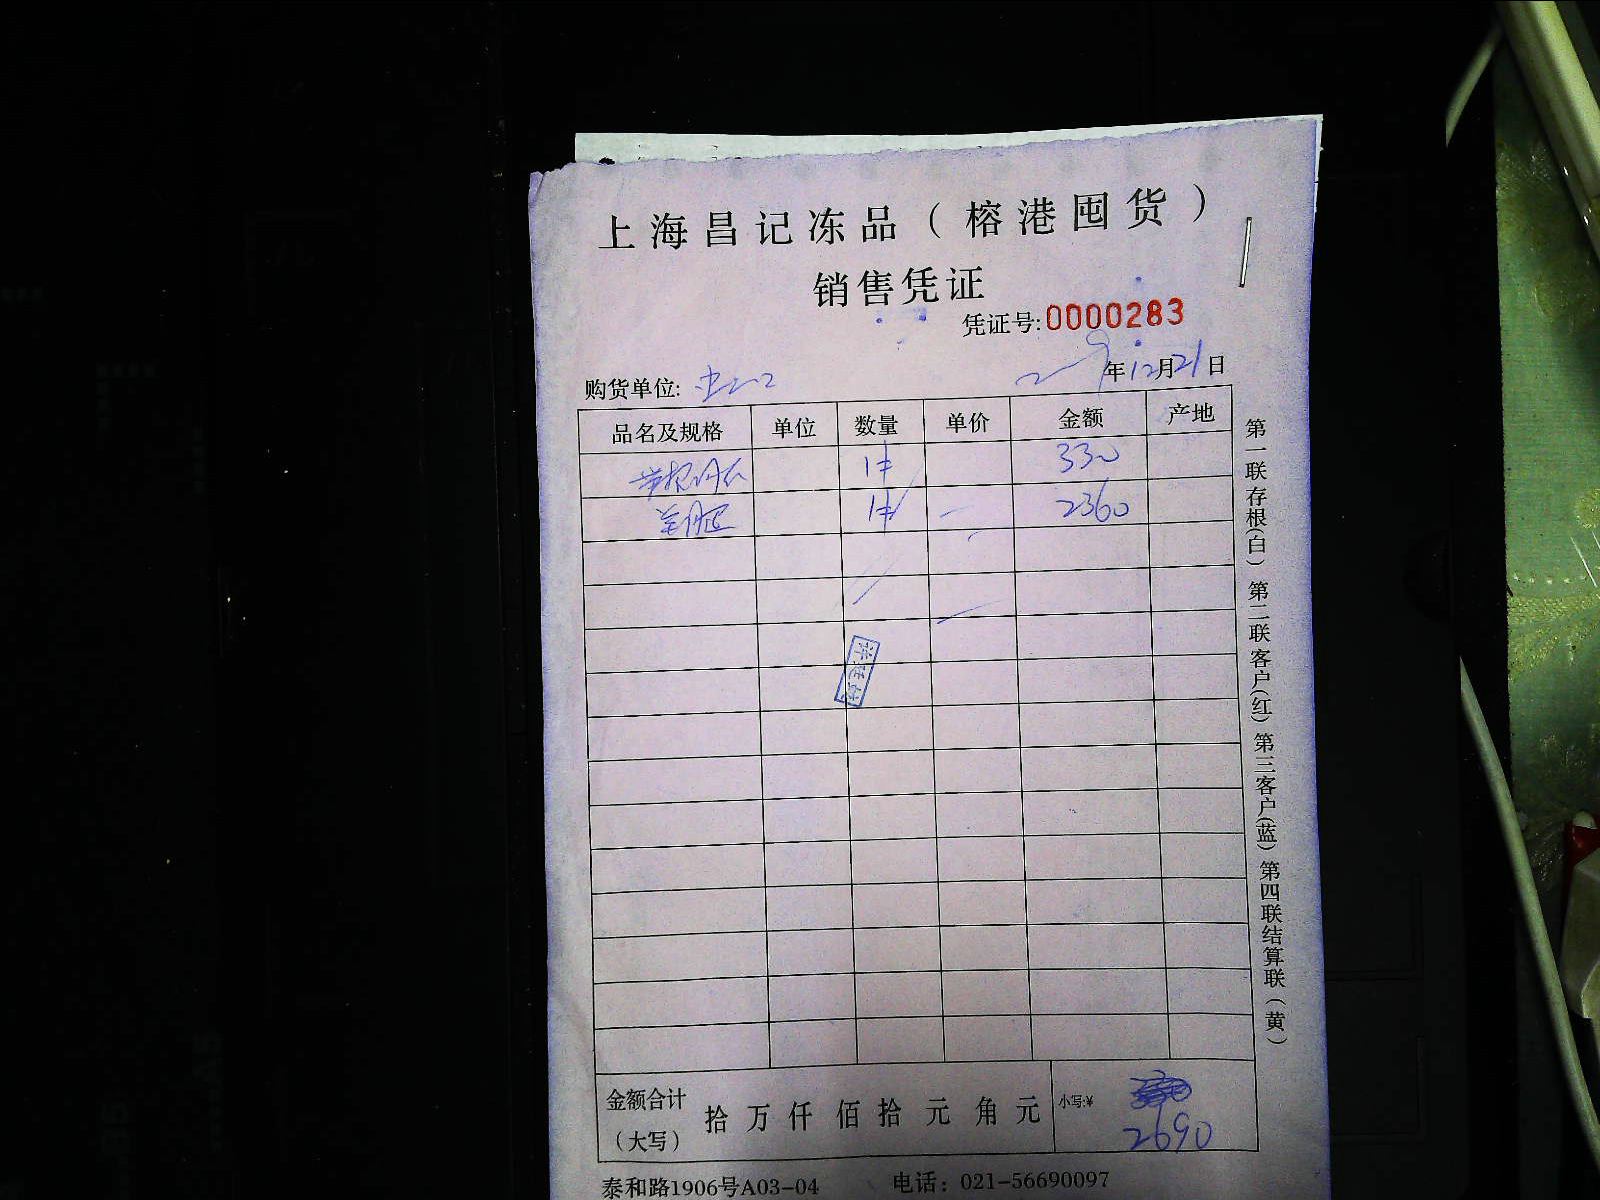 上海昌记冻品（榕港囤货）
销售凭证
凭证号:0000283
购货单位: 年12月21日
品名及规格 单位 数量 单价 金额 产地
1件 330
1件 2360
金额合计（大写） 拾 万 仟 佰 拾 元 角 元 小写:¥ 2690
泰和路1906号A03-04 电话：021-56690097
第一联存根(白) 第二联客户(红) 第三客户(蓝) 第四联结算联(黄)